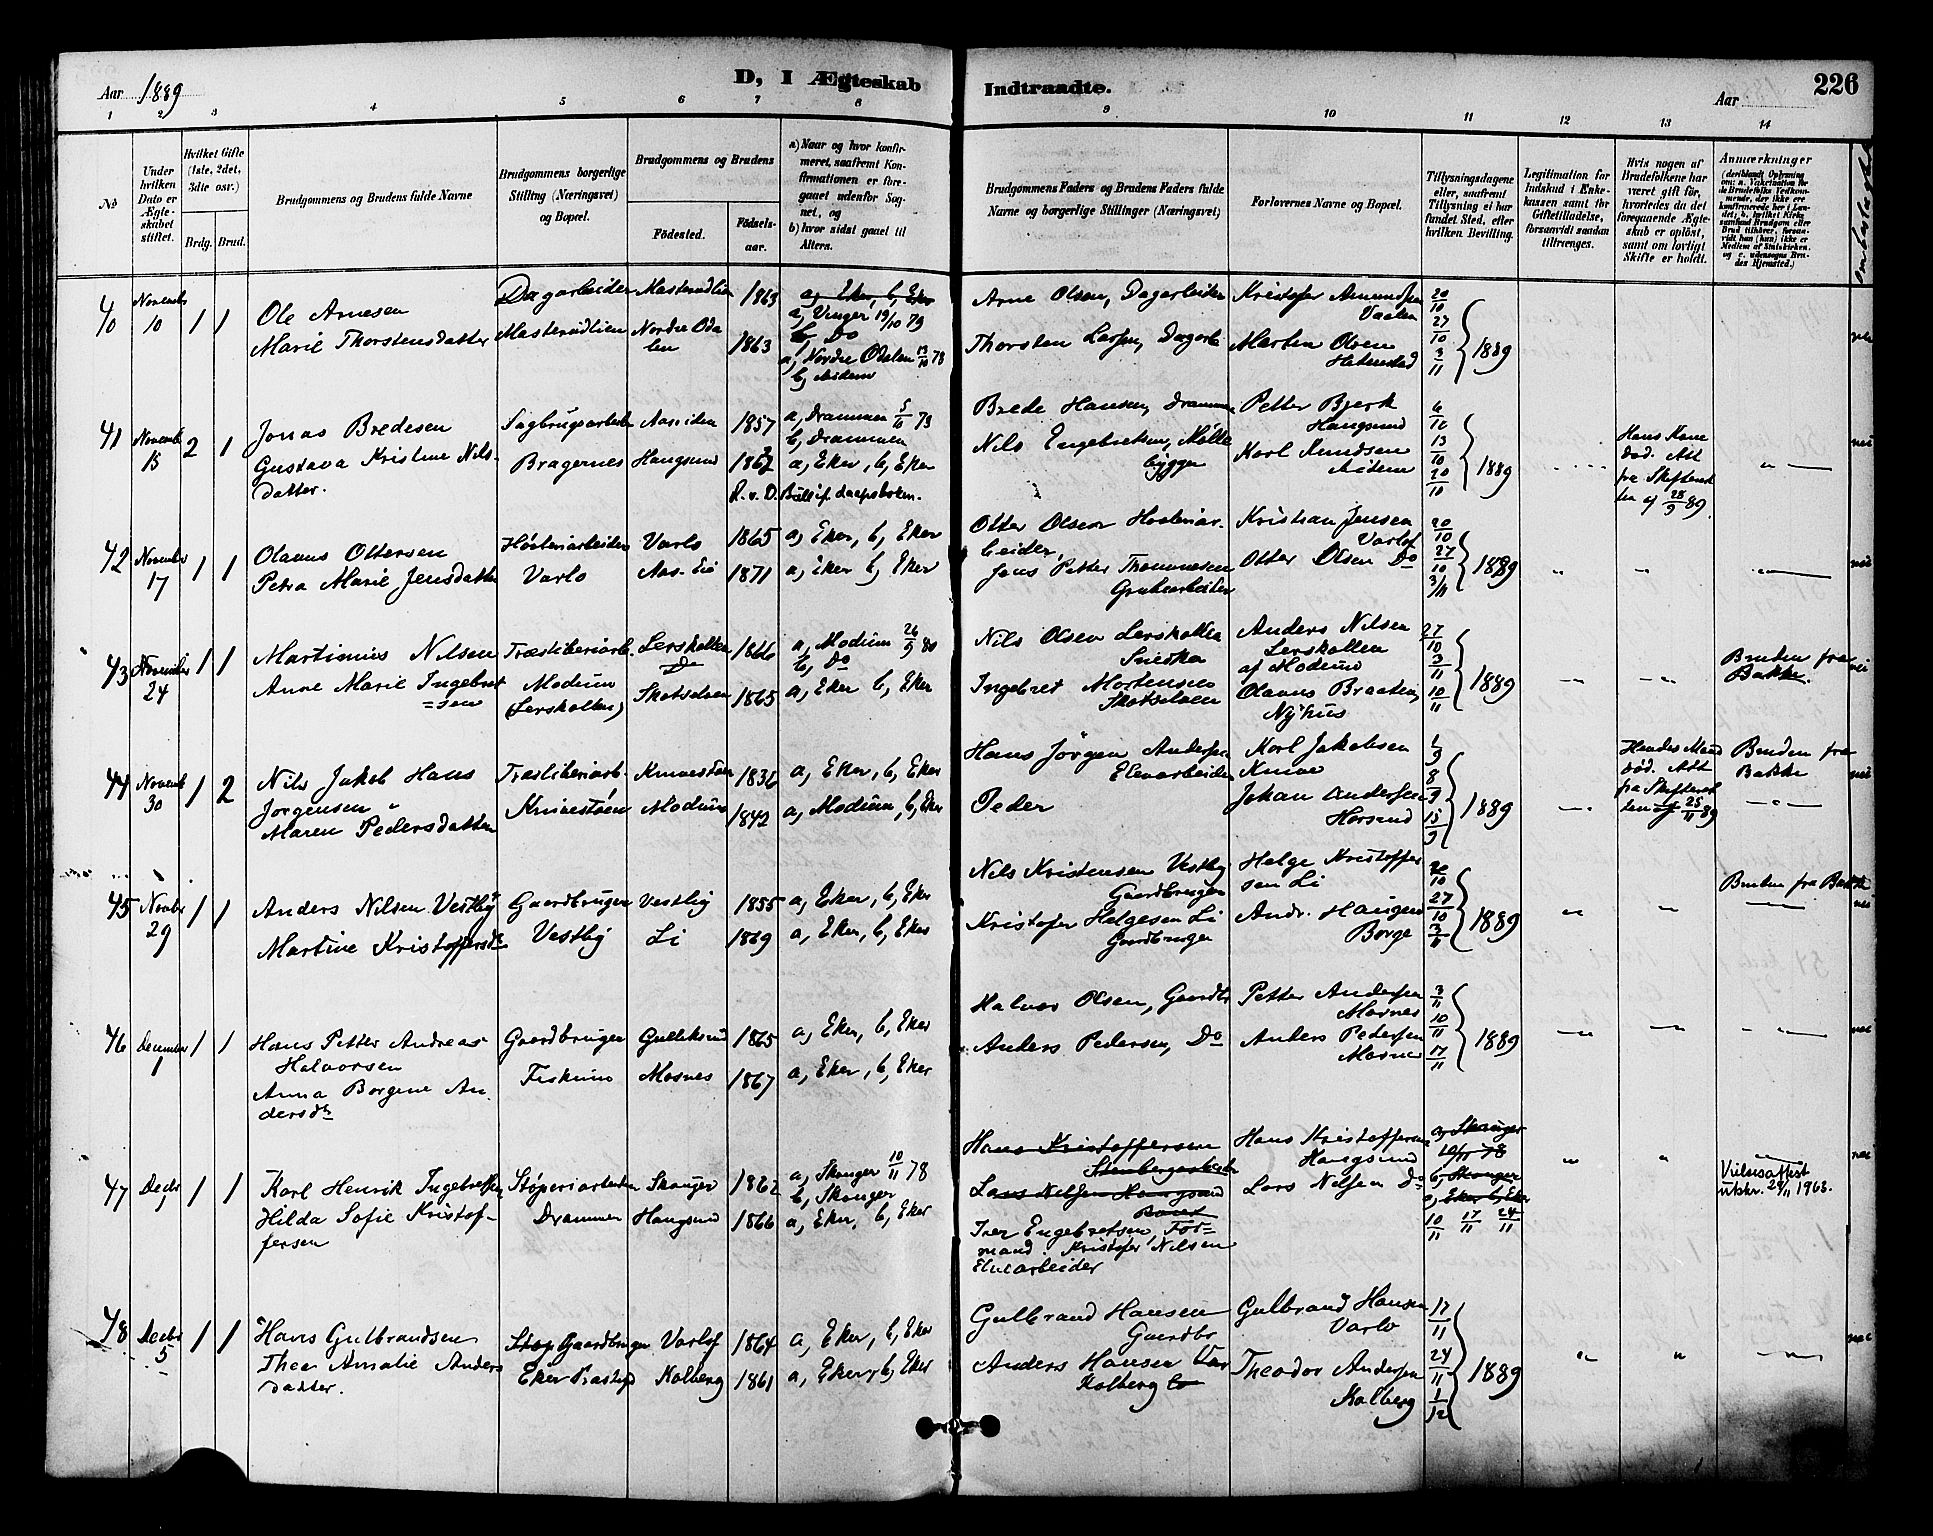 Aar 1889
D, I Ægteskab Indtraadte.
Aar
226
1 2 3 4 5 6 7 8 9 10 11 12 13 14
No
Under hvilken Dato er Ægteskabet stiftet.
Hvilket Gifte (1ste, 2det, 3die osr.)
Brdg. Brud.
Brudgommens og Brudens fulde Navne
Brudgommens borgerlige Stilling (Næringsvei) og Bopæl.
Brudgommens og Brudens
Födested.
Födselsaar.
a) Naar og hvor konfirmeret, saafremt Konfirmationen er foregaaet udenfor Sognet, og
b) hvor sidst gaaet til Alters.
Brudgommens Faders og Brudens Faders fulde Navne og borgerlige Stillinger (Næringsvei)
Forlovernes Navne og Bopæl.
Tillysningsdagene eller, saafremt Tillysning ei har fundet Sted, efter hvilken Bevilling.
Legitimation for Indskud i Enkekassen samt for Giftetilladelse, forsaavidt saadan tiltrænges.
Hvis nogen af Brudefolkene har været gift för, hvorledes da det foregaaende Ægteskab er oplöst, samt om lovligt Skifte er holdt.
Anmærkninger
40 November 10 1 1
Ole Arnesen
Marie Thorstensdatter
Dagarbeider
1863
1863
a, Eker, b, Eker
a, Vinger 19/10 79
b, Do
a, Nordre Odalen 13/10 78
Nordre Odalen
Arne Olsen, Dagarbeider
Thorsten Larsen, Dagarb
Kristofer Amundsen
Vaalen
Marten Olsen
20/10
27/10
3/11
1889
41 November 15 2 1
Jonas Bredesen
Gustava Kristine Nilsdatter.
Sagbrugsarbeider
Bragernes
Aassiden
Hougsund
1857
1862
a, Drammen 5/10 73
b, Drammen
a, Eker, b, Eker
Brede Hansen, Drammen
Nils Engebretsen, Møllebygger
Petter Bjerk
Hougsund
Karl Knudsen
6/10
13/10
20/10
1889
Hans Kone
død. Att
fra Skifteretten af 28/9 89
42 November 17 1 1
Olaus Ottersen
Petra Marie Jensdatter
Høvleriarbeider
Varlo
Varlo
1865
1871
a, Eker, b, Eker
a, Eker b, Eker
Otter Olsen Høvleriarbeider,
Jens Petter Thommesen
Grubearbeider
Kristian Jensen
Varlo
Otter Olsen Do
20/10
27/10
3/11
1889
43 November 24 1 1
Martinius Nilsen
Anne Marie Ingebretsen
Træsliberiarb.
Modum
(Lerskallen)
Lerskallen
Do
Skotselven
1866
1865
a, Modum 26/9 80
b, Do
a, Eker b, Eker
Nils Olsen Lerskallen
Snedker
Ingebret Mortensen
Skotselven
Anders Nilsen
Lerskallen
af Modum
Olaus Braaten,
Nyhus
27/10
3/11
10/11
1889
Bruden fra
Bakke
44 Novemb 30 1 2
Nils Jakob Hans
Jorgensen
Maren Pedersdatter
Træsliberiarb.
Knivestøen
Knivestøen
Modum
1836
1842
a, Eker, b, Eker
a, Modum, b, Eker
Hans Jörgen Andersen
Elvearbeider
Peder
Karl Jakobsen
Knive
Johan Andersen
Horsrud
1/9
8/9
15/9
1889
Hendes Mand
død. Att
fra Skifteretten af 25/11 89
Bruden fra
Bakke
45 Novbr 29 1 1
Anders Nilsen Vestby
Martine Kristoffersdr
Gaardbruger
Vestby
Vestby
Li
1855
1869
a, Eker, b, Eker
a, Eker, b, Eker
Nils Kristensen Vestby
Gaardbruger
Kristofer Helgesen Li
Gardbruger
Helge Kristoffersen Li
Andr. Haugen
Borge
20/10
27/10
3/11
1889
Bruden fra Bakke
46 December 1 1 1
Hans Petter Andreas
Halvorsen
Anna Borgine Andersdr
Gaardbruger
Fiskum
Gulleksrud
Mosnes
1865
1867
a, Eker, b, Eker
a, Eker, b, Eker
Halvor Olsen, Gaardbr
Anders Pedersen, Do
Petter Andersen
Mosnes
Anders Pedersen
Mosnes
3/11
10/11
17/11
1889
47 Decbr 1 1
Karl Henrik Ingebretsen
Hilda Sofie Kristoffersen
Støperiarbeider
Drammen
Skouger
Hougsund
1862
1866
a, Skouger 10/11 78
b, Skouger
a, Eker, b, Eker
Hans Kristoffersen
Lars Nilsen Hougsund
Iver Engebretsen Formand. Kristofer Nilsen
Elvearbeider
Hans Kristoffersen
Hougsund
Lars Nilsen Do
a, Skouger
10/11 78
b, Skouger
a, Eker b, Eker
10/11 17/11 24/11
Vielsesattest
utskr. 29/11 1968.
48 Decbr 5 1 1
Hans Gulbrandsen
Thea Amalie Andersdatter.
Gaardbruger
Eker Prestegd
Varlo
Kolberg
1864
1861
a, Eker, b, Eker
a, Eker, b, Eker
Gulbrand Hansen
Gaardbr
Anders Hansen
Kolberg
Gulbrand Hansen
Varlo
Theodor Andersen
Kolberg
17/11
24/11
1/12
1889